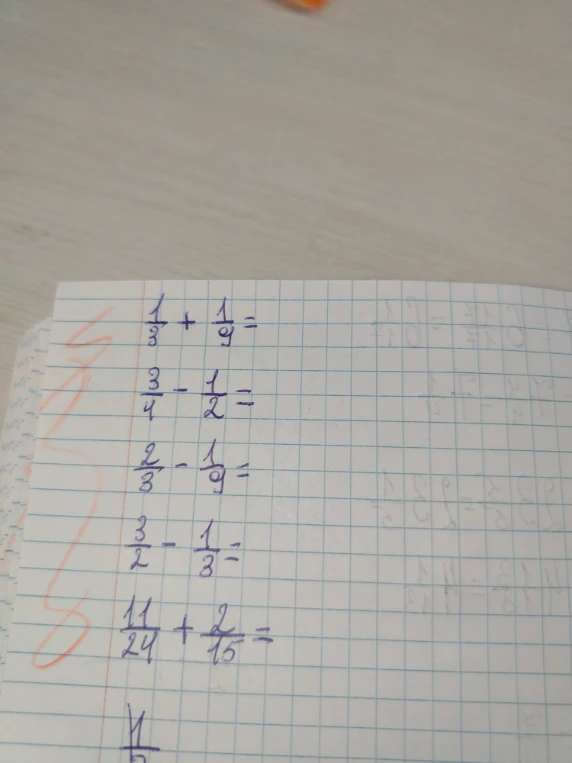 1/3 + 1/9 =
3/4 - 1/2 =
2/3 - 1/9 =
3/2 - 1/3 =
11/24 + 2/15 =
1